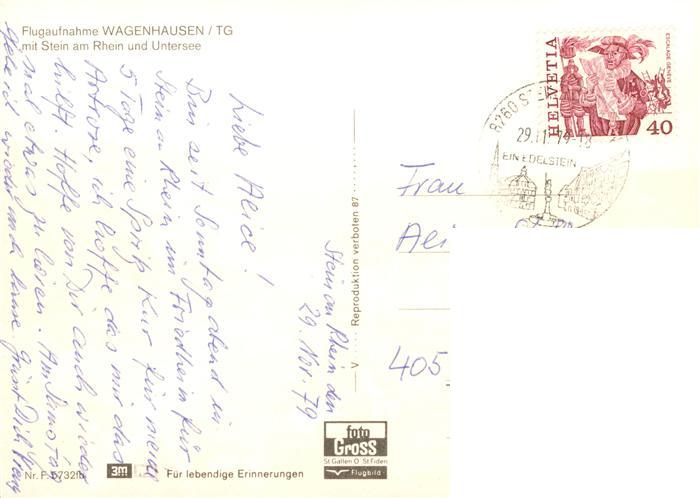 Flugaufnahme WAGENHAUSEN / TG
mit Stein am Rhein und Untersee
Stein am Rhein den
29. Nov. 79
Liebe Alice!
Bin seit Sonntagabend in
Stein am Rhein im Friedheim für
5 Tage eine Spritz Kur für meine
Artrose, ich hoffe das mir das
hilft. Hoffe von Dir auch wieder
mal etwas zu hören. Am Samstag
gehe ich wieder nach Hause Grüsst Dich
Nr. F 5732fb
3M
Für lebendige Erinnerungen
foto
Gross
St Gallen O St Fiden
Flugbild
V
Reproduktion verboten 87
HELVETIA
ESCALADE GENÈVE
40
8260 ST
29.11.79-18
EIN EDELSTEIN
Frau
Ali
405